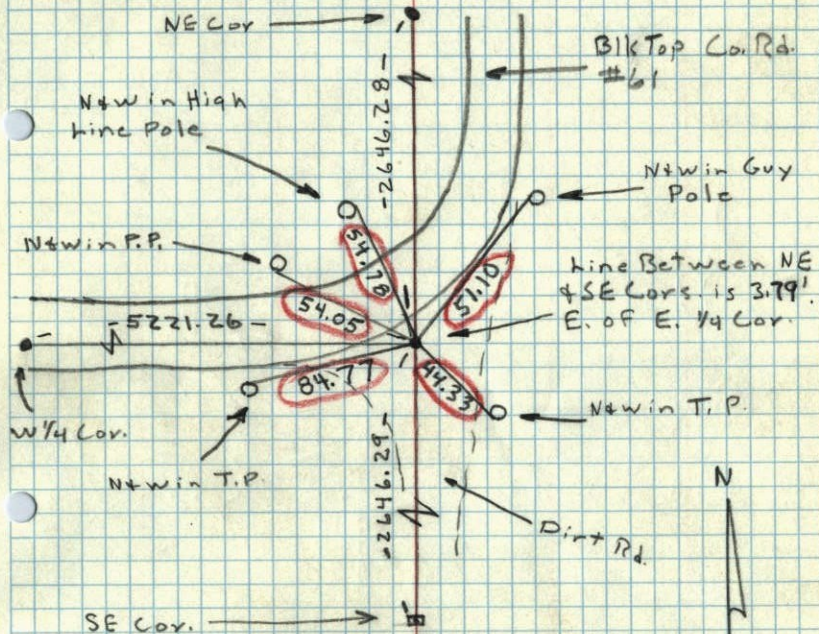 NE Cor
Blk Top Co. Rd.
#61
N&W in High
Line Pole
-2646.28-
N&W in Guy
Pole
N&W in P.P.
54.78
54.05
51.10
Line Between NE
& SE Cors. is 3.79'
E. of E. 1/4 Cor.
-5221.26-
84.77
44.33
W 1/4 Cor.
N&W in T.P.
N&W in T.P.
-2646.29-
N
Dirt Rd.
SE Cor.